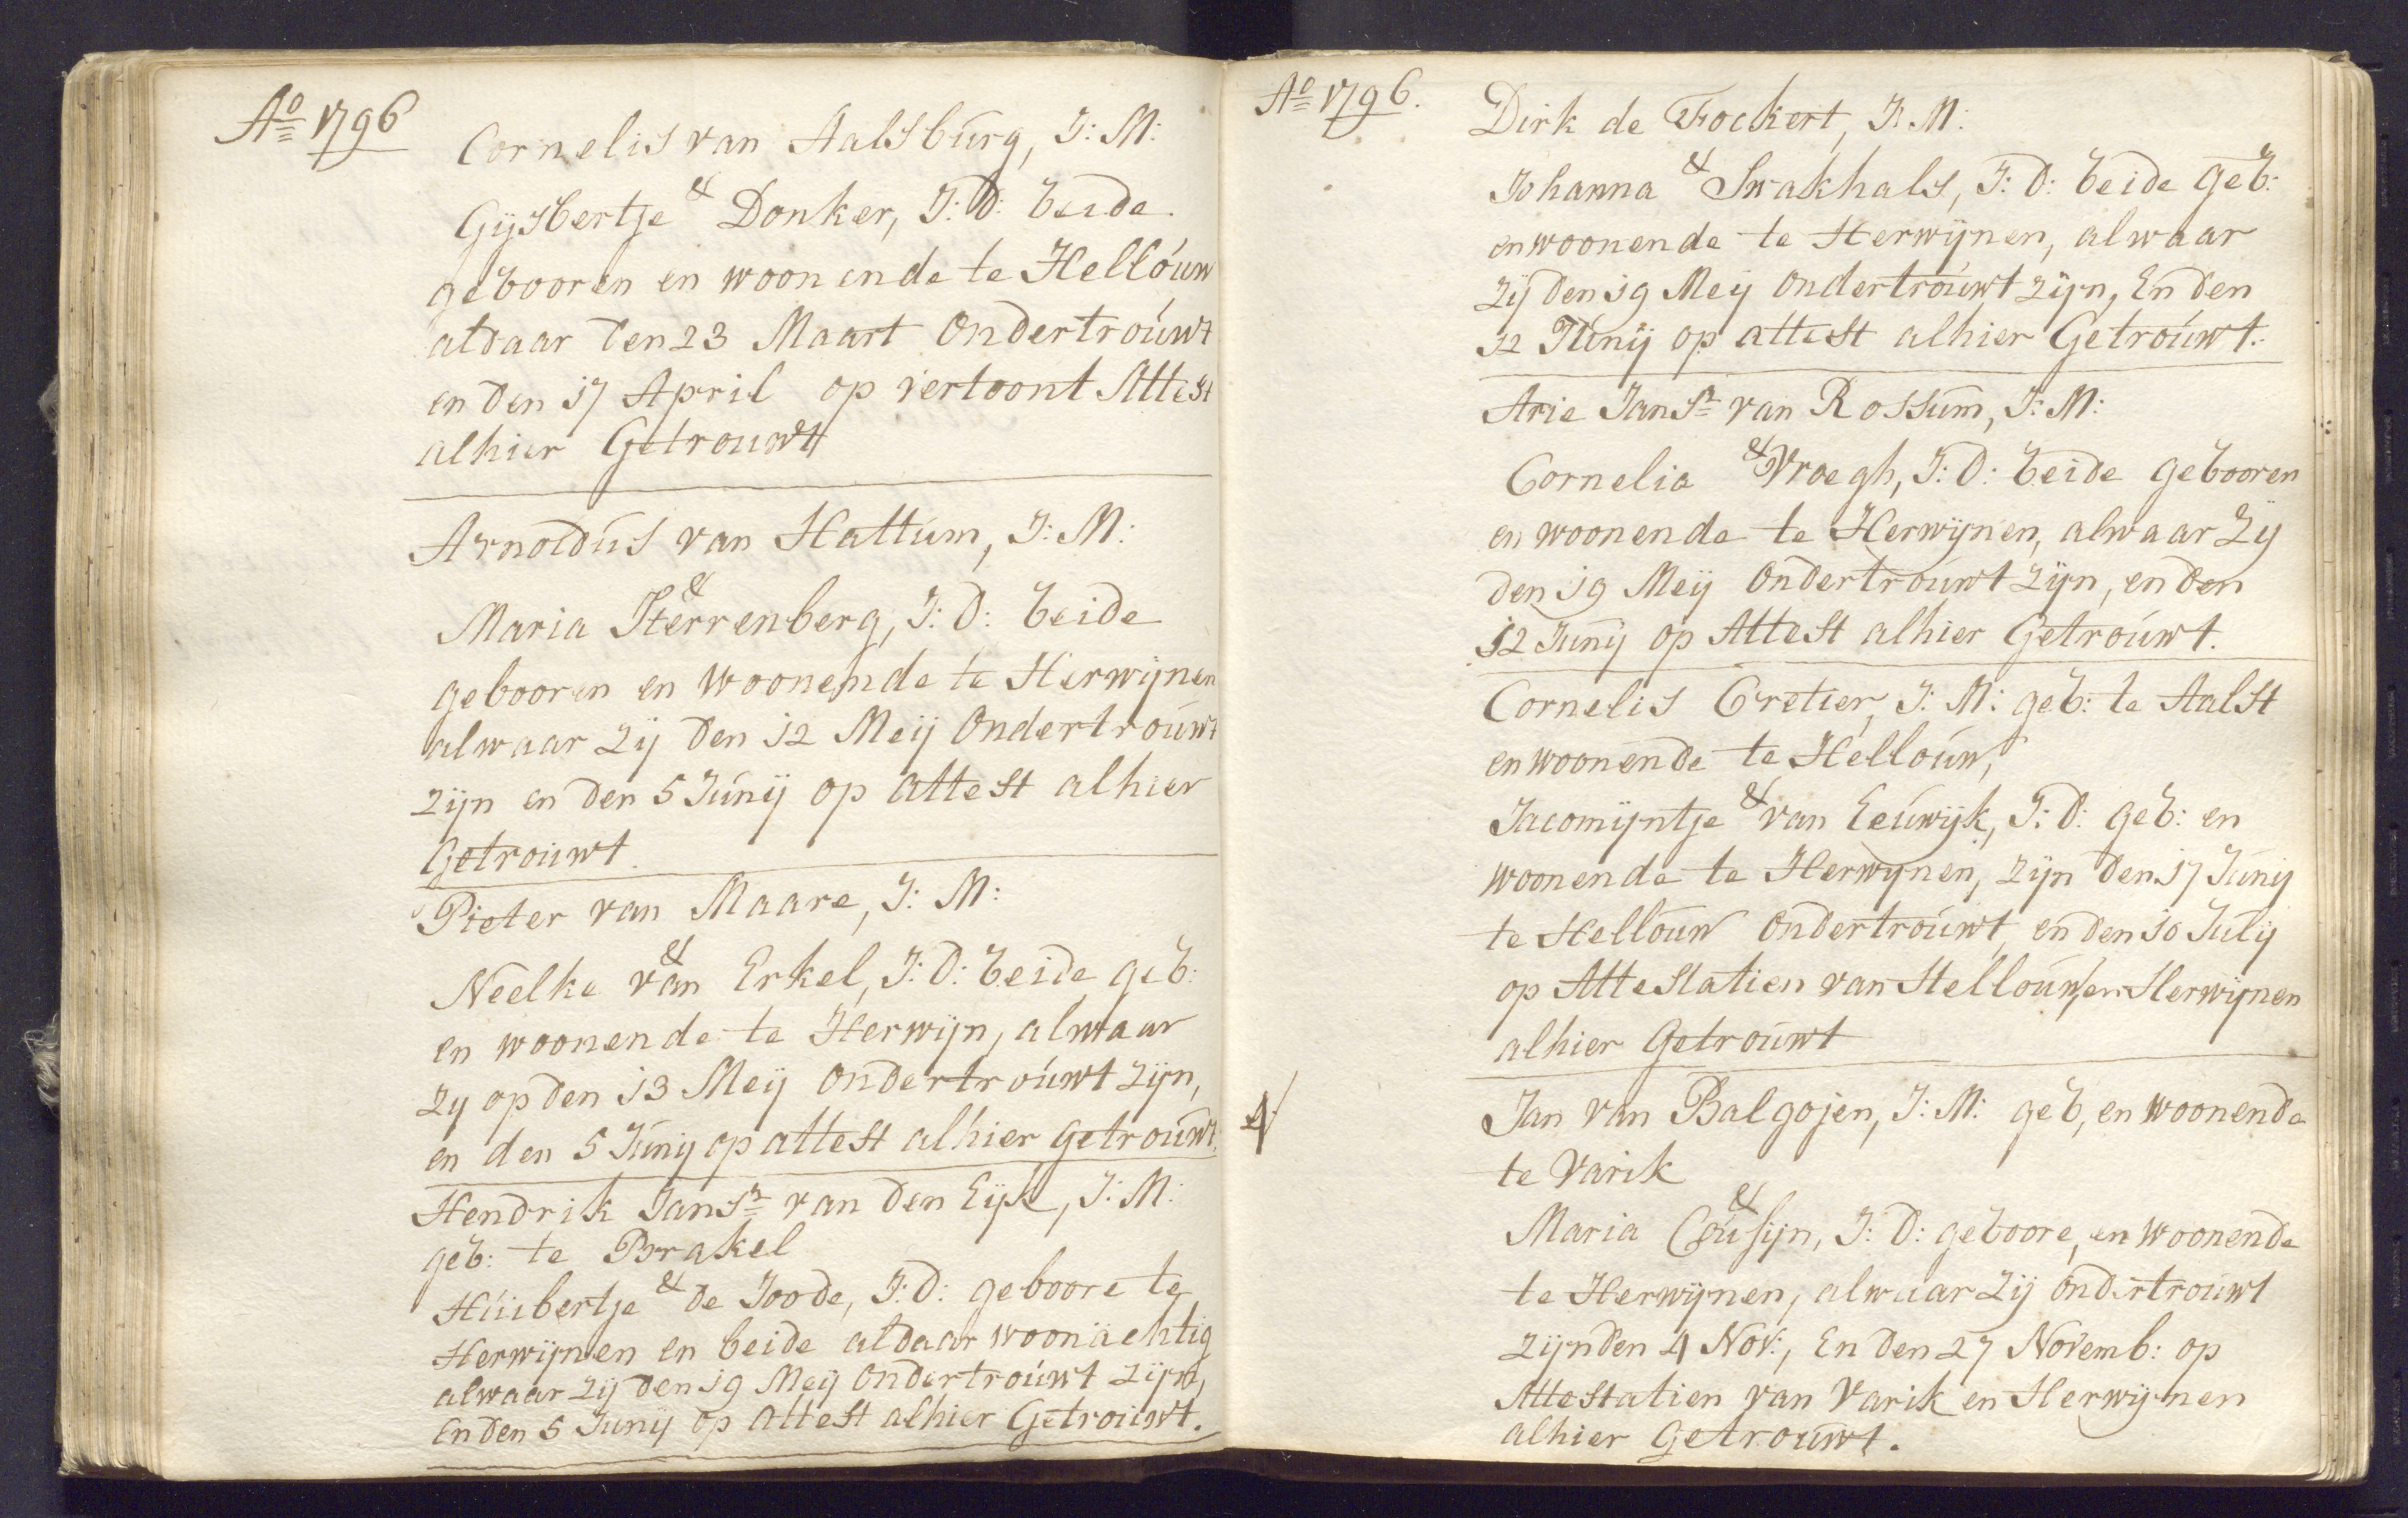 Ao 1796
Cornelis van Aalsburg, J: M:
&
Gijsbertje Donker, J: D: beide
gebooren en woonende te Hellouw
aldaar den 23 Maart Ondertrouwt
en den 17 April op vertoont Attest
alhier Getrouwt
Arnoldus van Hattum, J: M:
&
Maria Herrenberg, J: D: beide
gebooren en woonende te Herwijnen
alwaar zij den 12 Meij Ondertrouwt
zijn en den 5 Junij op attest alhier
Getrouwt.
Pieter van Maare, J: M:
&
Neelke van Erkel, J: D: beide geb:
en woonende te Herwijn, alwaar
zy op den 13 Meij Ondertrouwt zijn,
en den 5 Junij op attest alhier getrouwt.
Hendrik Jansn van den Eijk, J: M:
geb: te Brakel
&
Huibertje de Joode, J: D: geboore te
Herwijnen en beide aldaar woonachtig
alwaar zij den 19 Meij Ondertrouwt zijn,
en den 5 Junij op attest alhier Getrouwt.
Ao 1796.
Dirk de Fockert, J: M:
&
Johanna Swakhals, J: D: beide geb:
en woonende te Herwijnen, alwaar
zij den 19 Meij Ondertrouwt zijn, En den
12 Junij op attest alhier Getrouwt.
Arie Jansn van Rossum, J: M:
&
Cornelia Vroegh, J: D: beide gebooren
en woonende te Herwijnen, alwaar zij
den 19 Meij Ondertrouwt zijn, en den
12 Junij op Attest alhier Getrouwt.
Cornelis Cretier, J: M: geb: te Aalst
en woonende te Hellouw,
&
Jacomijntje van Eeuwijk, J: D: geb: en
woonende te Herwijnen, zijn den 17 Junij
te Hellouw Ondertrouwt, en den 10 Julij
op Attestatien van Hellouw, en Herwijnen
alhier Getrouwt
Jan van Balgojen, J: M: geb, en woonende
te Varik
&
Maria Cousijn, J: D: geboore, en woonende
te Herwijnen, alwaar zij ondertrouwt
zijn den 4 Nov:, En den 27 Novemb: op
Attestatien van Varik en Herwijnen
alhier Getrouwt.